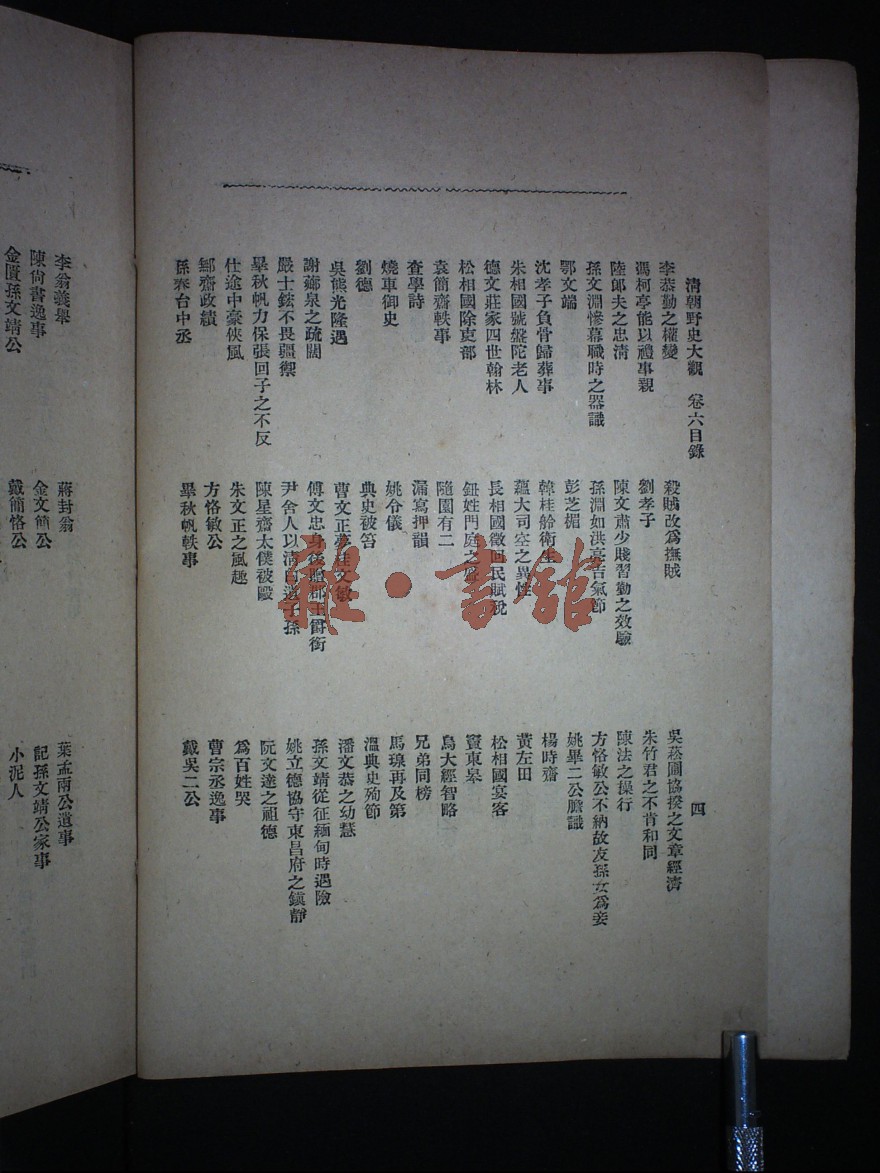 清朝野史大觀 卷六目錄 四
李恭勤之權變
馮柯亭能以禮事親
陸郎夫之忠清
孫文淵慘幕職時之器識
鄂文端
沈孝子負骨歸葬事
朱相國號盤陀老人
德文莊家四世翰林
松相國除吏部
袁簡齋軼事
查學詩
燒車御史
劉德
吳熊光隆遇
謝薌泉之疏闊
嚴士鋐不畏疆禦
畢秋帆力保張回子之不反
仕途中豪俠風
鄦齋政績
孫春台中丞
殺賊改為撫賊
劉孝子
陳文肅少賤習勤之效驗
孫淵如洪亮吉氣節
彭芝楣
韓桂舲衛生
蘊大司空之異性
長相國徵回民賦稅
鈕姓門庭之盛
隨園有二
漏寫押韻
姚令儀
典史被笞
曹文正夢桂文敏
傅文忠身後贈郡王爵銜
尹舍人以清白遺子孫
陳星齋太僕被毆
朱文正之風趣
方恪敏公
畢秋帆軼事
吳菘圃協揆之文章經濟
朱竹君之不肯和同
陳法之操行
方恪敏公不納故友孫女為妾
姚畢二公膽識
楊時齋
黃左田
松相國宴客
竇東皋
烏大經智略
兄弟同榜
馬瑔再及第
溫典史殉節
潘文恭之幼慧
孫文靖從征緬甸時遇險
姚立德協守東昌府之鎮靜
阮文達之祖德
為百姓哭
曹宗丞逸事
戴吳二公
李翁義舉
陳尚書逸事
金匱孫文靖公
蔣封翁
金文簡公
戴簡恪公
葉孟兩公遺事
記孫文靖公家事
小泥人
雜·書館